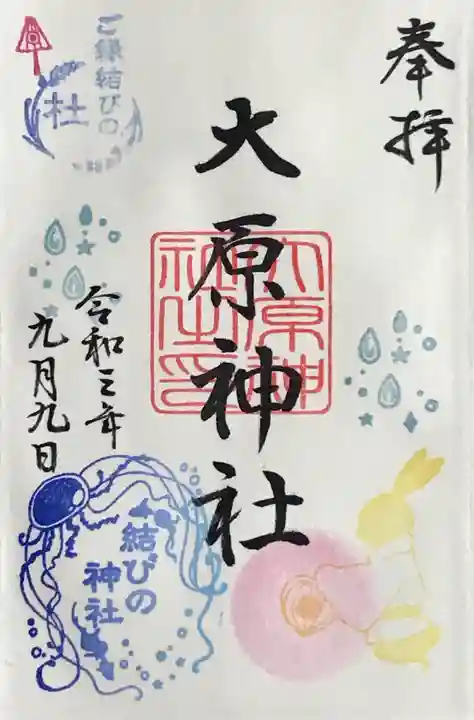 奉拝
大原神社
大原神
社之印
令和三年
九月九日
ご縁結びの
杜
結びの
神社